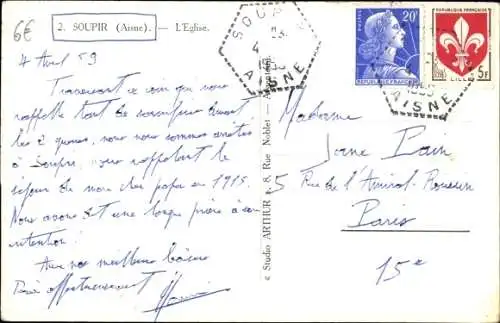 6€
2. SOUPIR (Aisne). — L'Eglise.
4 Avril 59
Traversant ce coin qui nous
rappelle tant de
les 2 guerres, nous nous sommes arrêtés
à Soupir, nous rappelant le
séjour de mon cher papa en 1915.
Nous avons dit une longue prière à son
intention!
Avec nos meilleurs baisers
Bien affectueusement
© Studio ARTHUR 8, Rue Noblet
SOUPIR
AISNE
20F
POSTES
REPUBLIQUE FRANÇAISE
REPUBLIQUE FRANÇAISE
LILLE 5F
AISNE
Madame
Jane Pain
5 Rue de l'Amiral-Roussin
Paris
15e